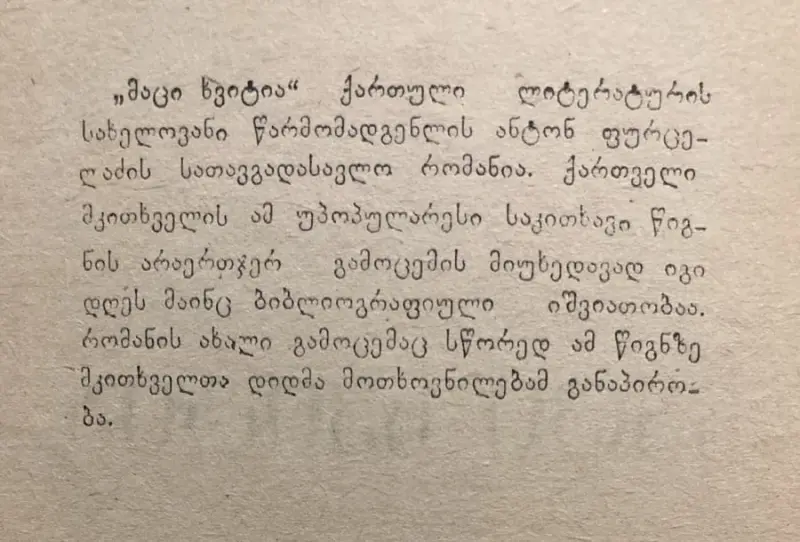 „მაცი ხვიტია“ ქართული ლიტერატურის
სახელოვანი წარმომადგენლის ანტონ ფურცე-
ლაძის სათავგადასავლო რომანია. ქართველი
მკითხველის ამ უპოპულარესი საკითხავი წიგ-
ნის არაერთჯერ გამოცემის მიუხედავად იგი
დღეს მაინც ბიბლიოგრაფიული იშვიათობაა.
რომანის ახალი გამოცემაც სწორედ ამ წიგნზე
მკითხველთა დიდმა მოთხოვნილებამ განაპირო-
ბა.